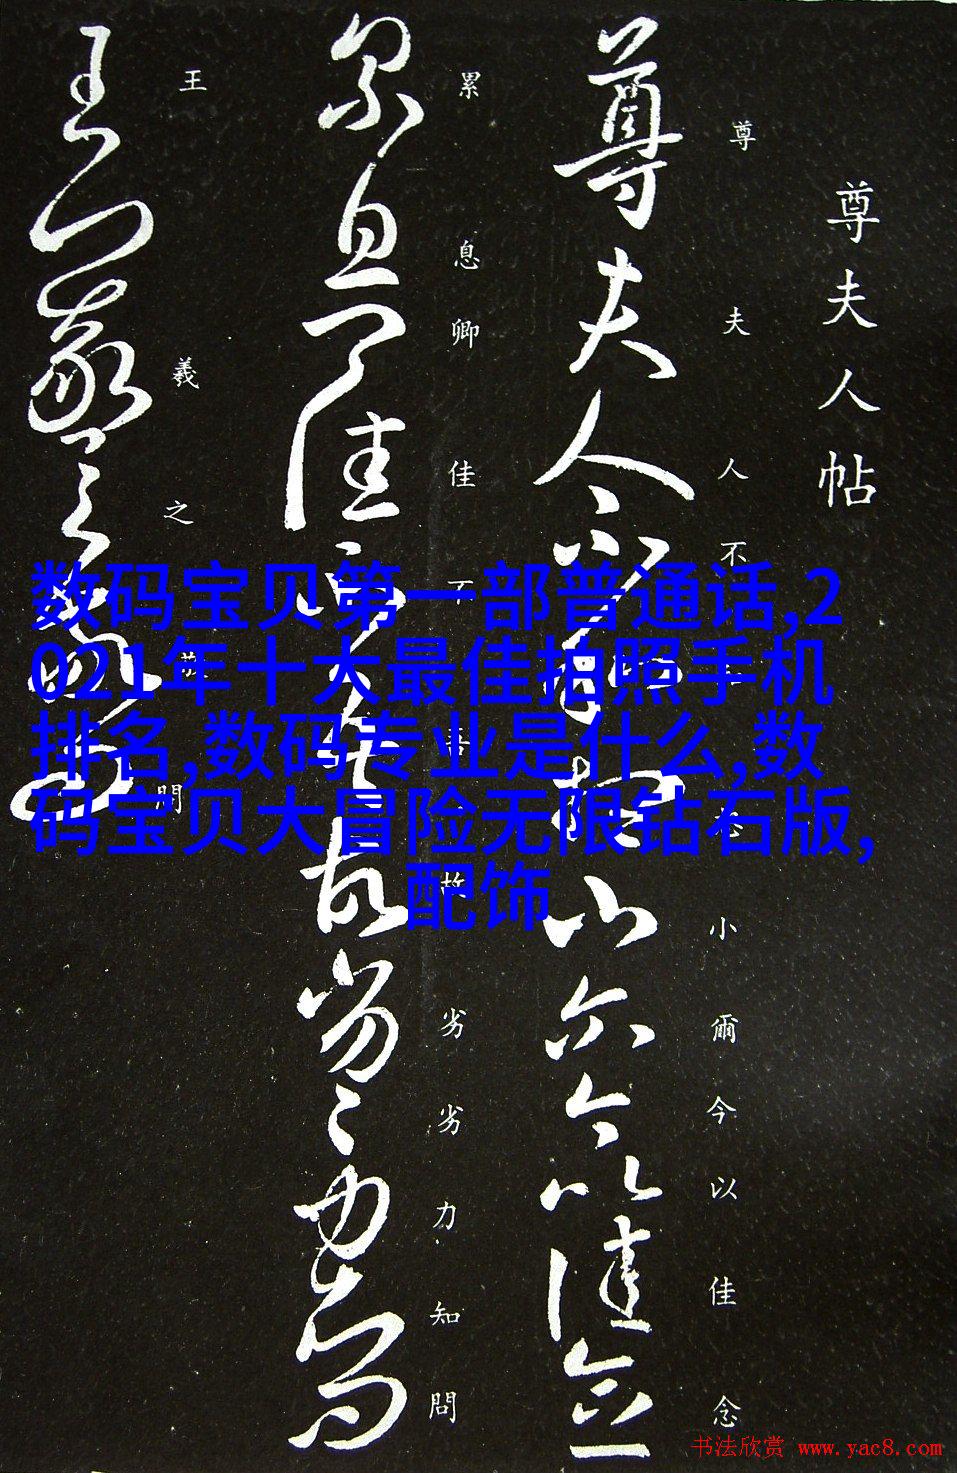 尊夫人帖
尊夫人不
小爾今以佳念
累息卿佳不
故劣劣力知問
王羲之
問
数码宝贝第一部普通话,2
021年十大最佳拍照手机
排名,数码专业是什么,数
码宝贝大冒险无限钻石版,
配饰
书法欣赏 www.yac8.com